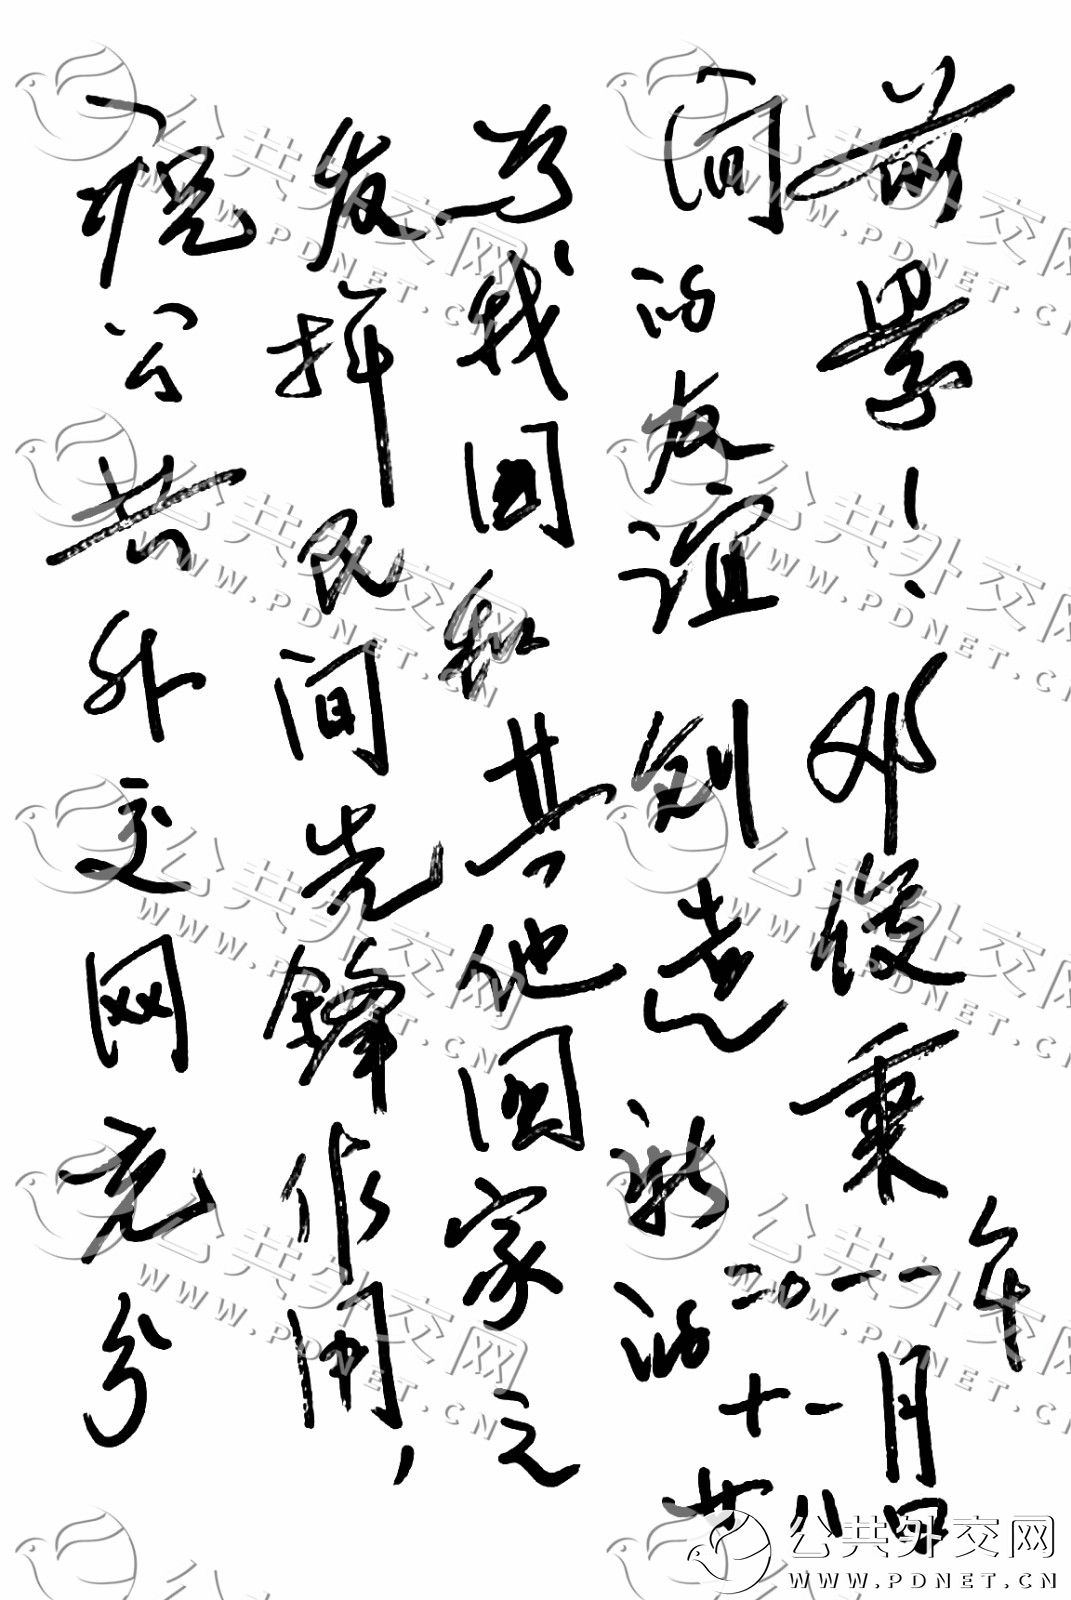 祝公共外交网充分
发挥民间先锋作用，
为我国和其他国家之
间的友谊创造新的
前景！邓俊秉
二〇一一年
十一月
廿八日
公共外交网
WWW.PDNET.CN